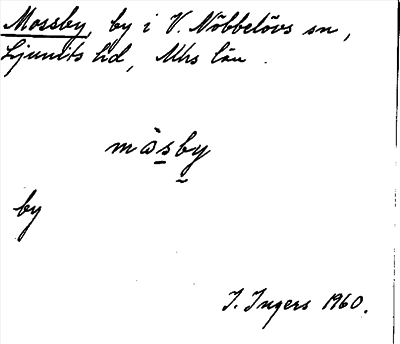 Mossby, by i V. Nöbbelövs sn,
Ljunits hd, Mhs län.
måsby
by
I. Ingers 1960.